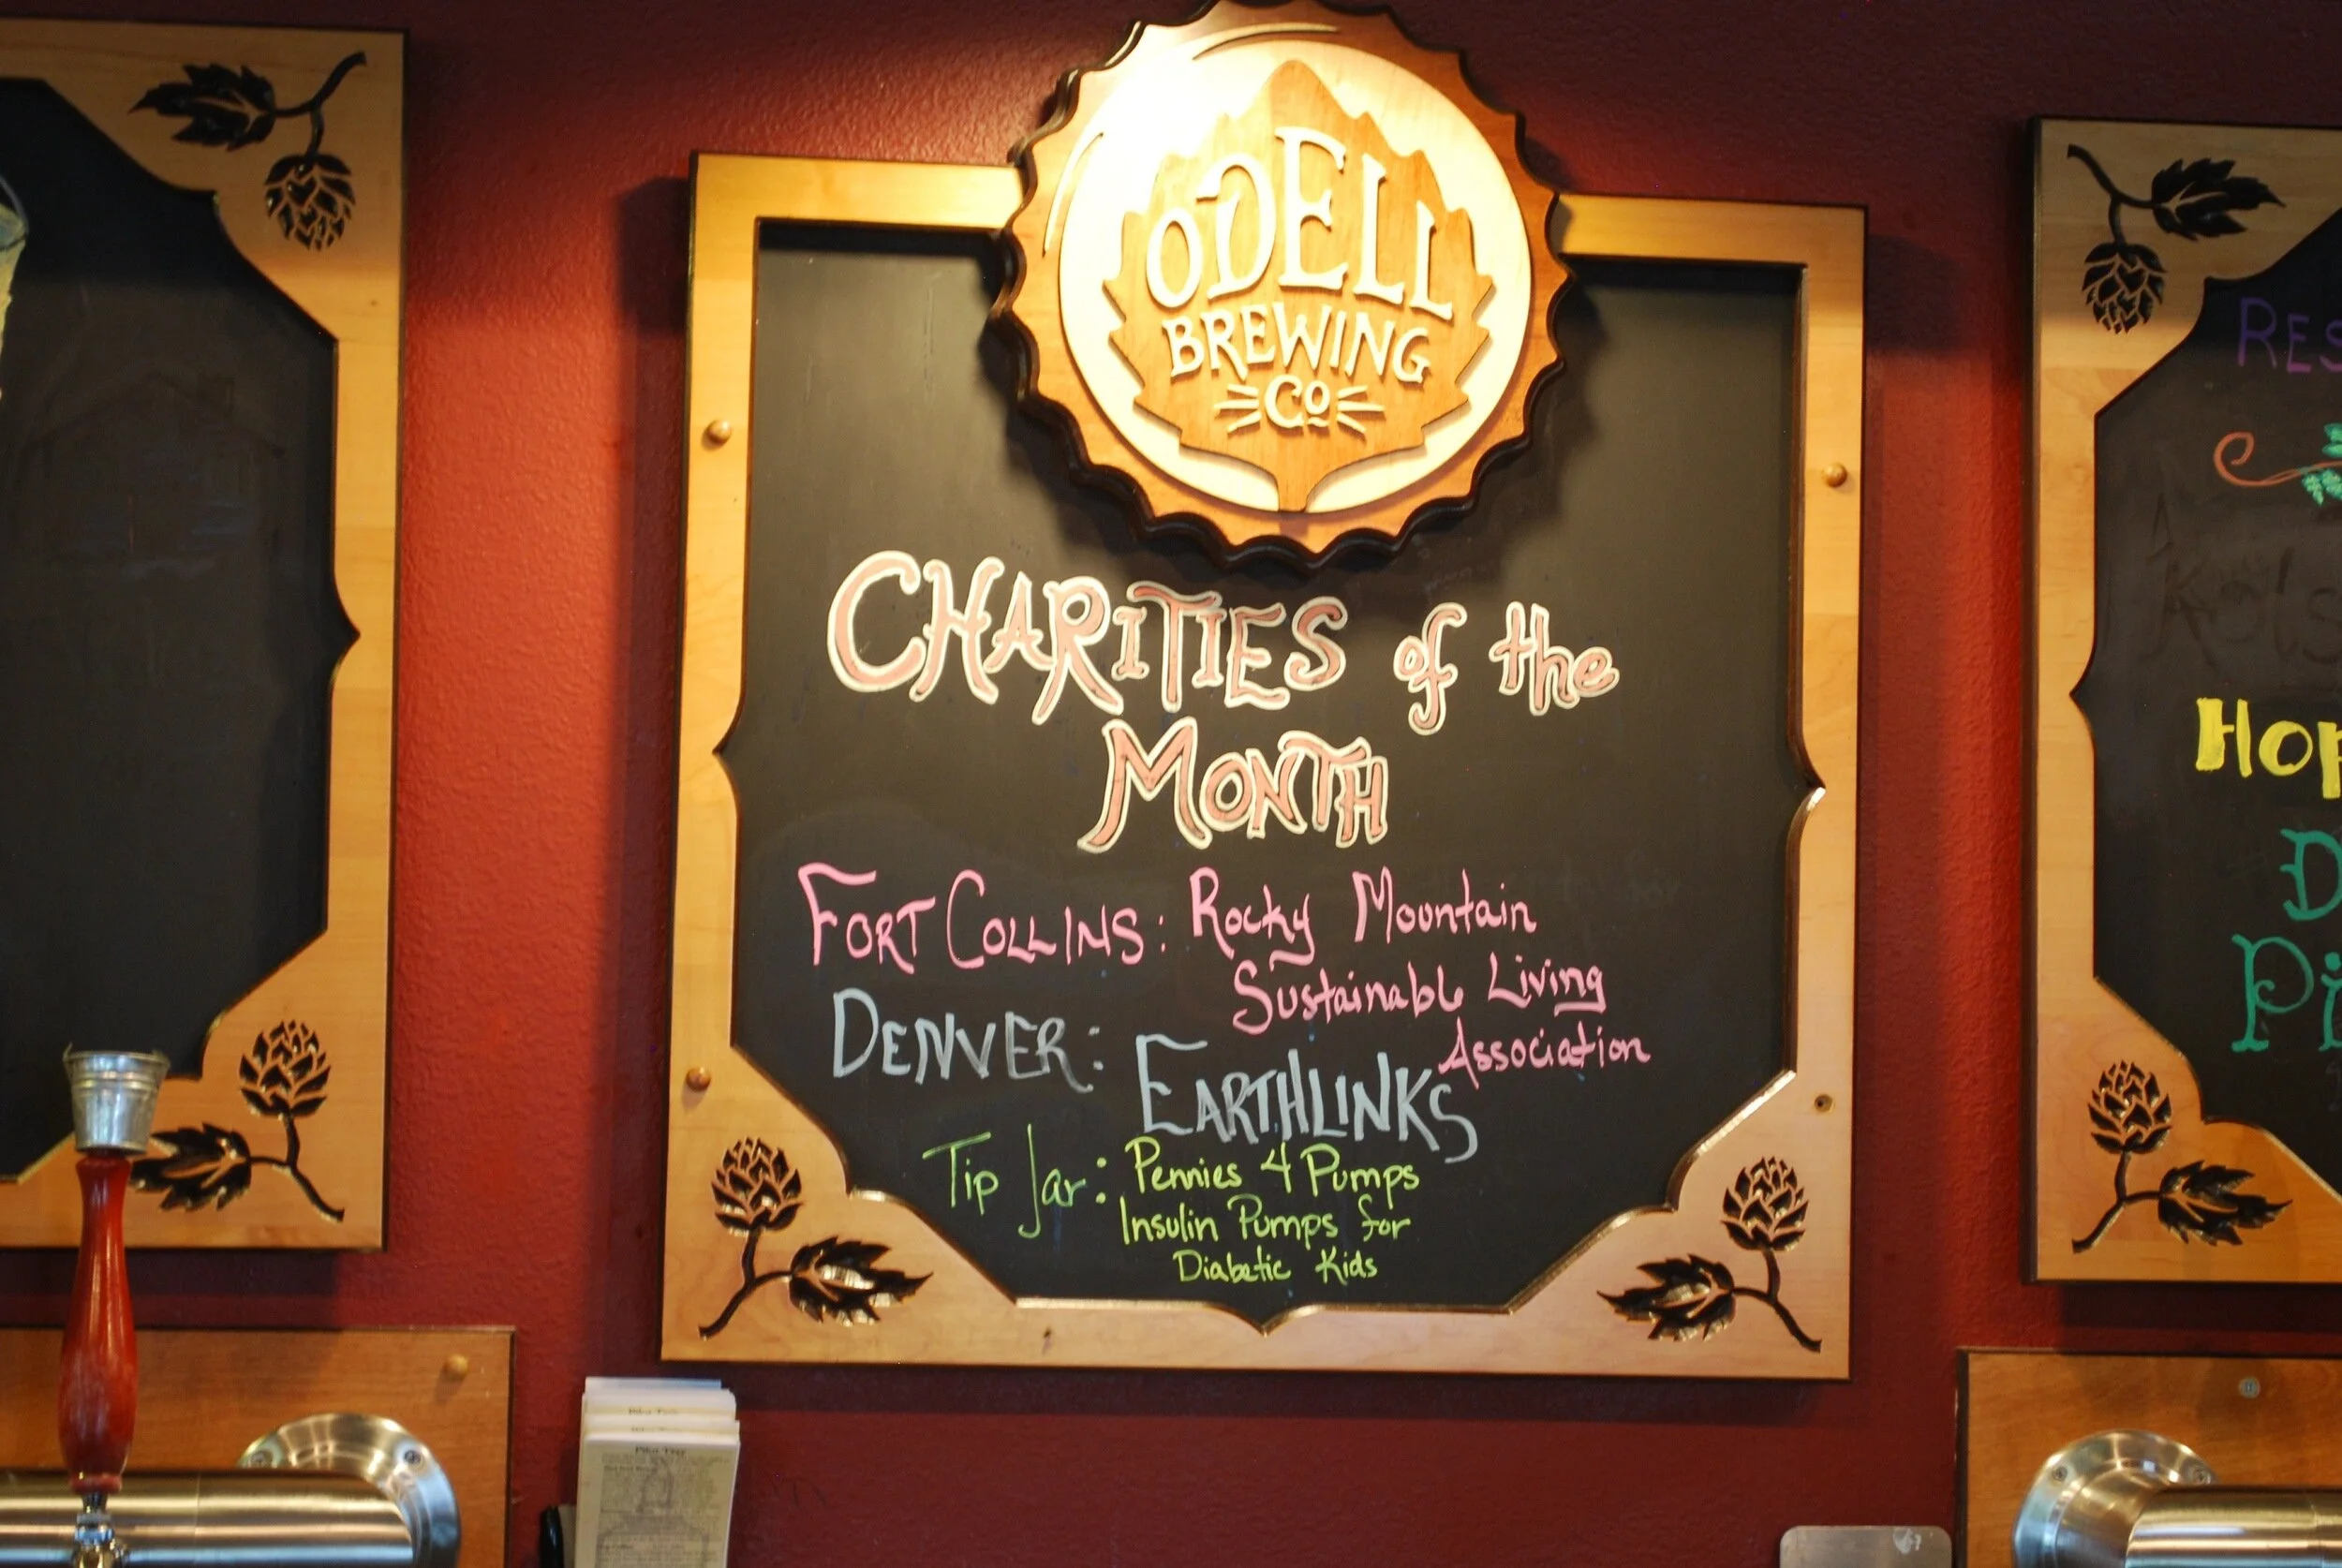 ODELL
BREWING
CO
CHARITIES of the
MONTH
FORT COLLINS: Rocky Mountain
Sustainable Living
Association
DENVER: EARTHLINKS
Tip Jar: Pennies 4 Pumps
Insulin Pumps for
Diabetic Kids